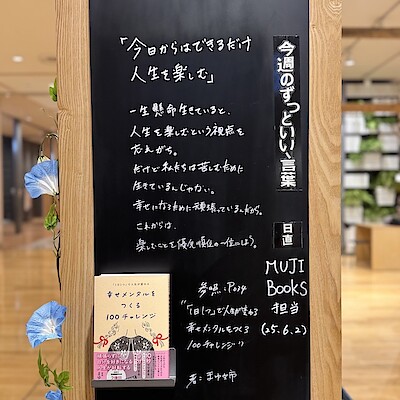 「今日からはできるだけ
人生を楽しむ」
一生懸命生きていると、
人生を楽しむという視点を
忘れがち。
だけど私たちは苦しむために
生きているんじゃない。
幸せになるために頑張っているんだから。
これからは、
楽しむことを優先順位の一位にしよう。
参照：P.034
「1日1つで人生が変わる
幸せメンタルをつくる
100チャレンジ」
著：まゆ姉
今週のずっといい、言葉
日直
MUJI
BOOKS
担当
(25.6.2)
幸せメンタルを
つくる
100チャレンジ